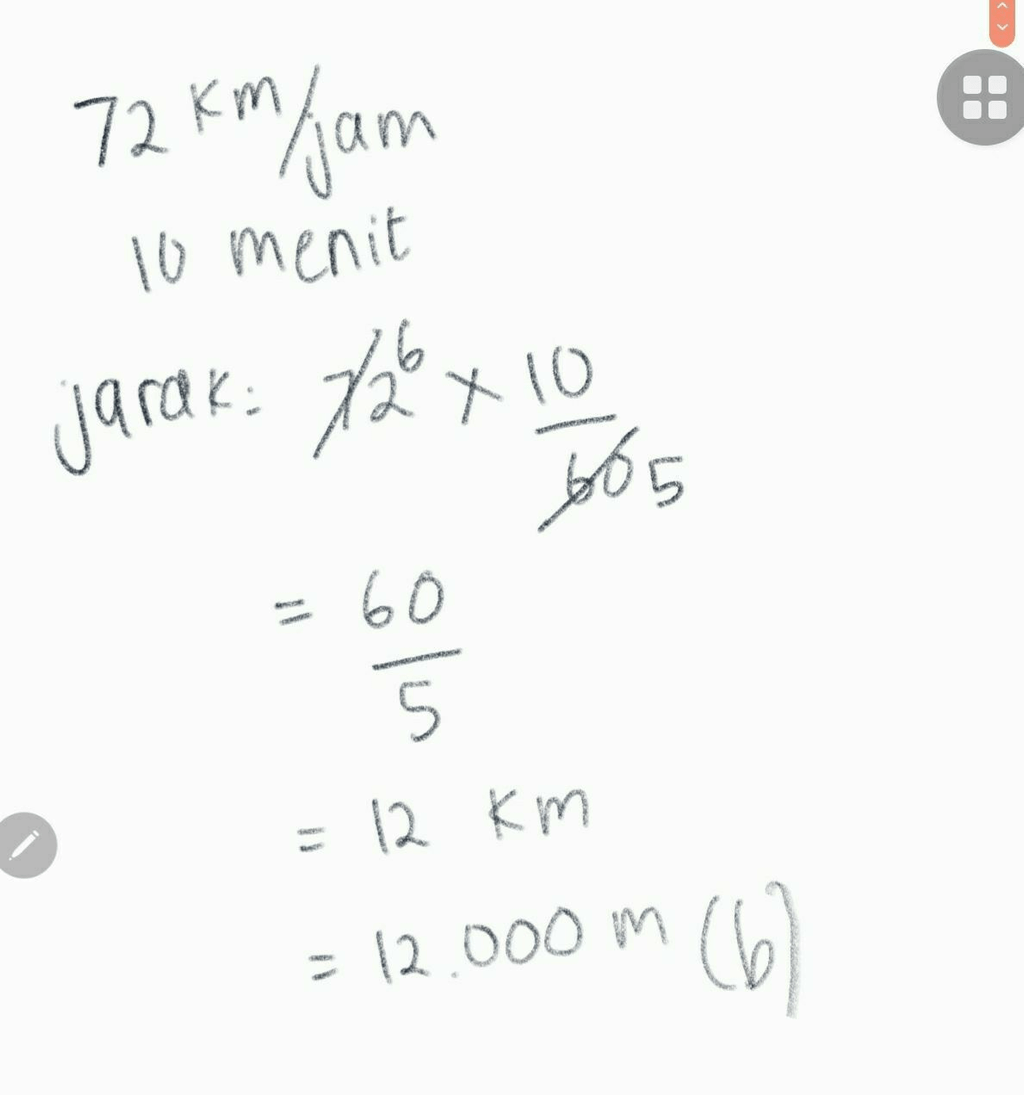 72 Km/jam
10 menit
jarak: 72 6 x 10
60 5
= 60
5
= 12 Km
= 12.000 m (b)